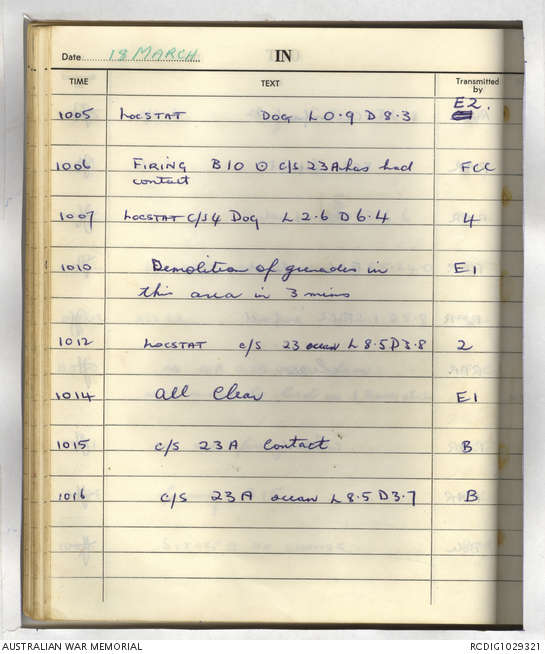 Date 18 MARCH IN
TIME TEXT Transmitted by
1005 LOCSTAT DOG L 0.9 D 8.3 E2.
1006 FIRING B10 ⊙ C/S 23A has had FCC
contact
1007 LOCSTAT C/S 4 DOG L 2.6 D 6.4 4
1010 Demolition of grenades in E1
this area in 3 mins
1012 LOCSTAT C/S 23 ocean L 8.5 D 3.8 2
1014 all clear E1
1015 C/S 23A Contact B
1016 C/S 23A ocean L 8.5 D 3.7 B
AUSTRALIAN WAR MEMORIAL RCDIG1029321